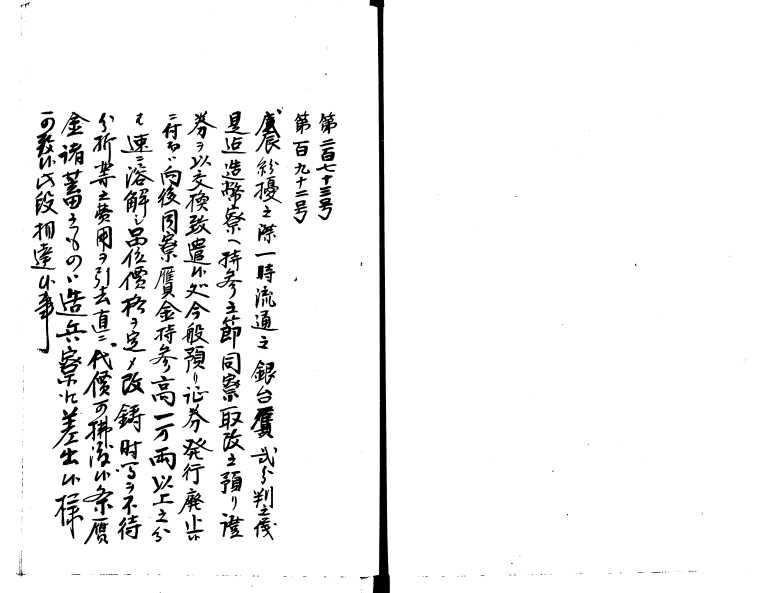 第二百七十三号
第百九十二号
戊辰紛擾之際一時流通之銀台贋弐分判之儀
是迄造幣寮ヘ持参之節同寮取改之預リ證
券ヲ以交換致遣候処今般預リ証券発行廃止候
ニ付而ハ向後同寮贋金持参高一万両以上之分
ハ速ニ溶解シ品位價格ヲ定メ改鋳時日ヲ不待
分析等之費用ヲ引去直ニ代價可拂渡候条贋
金諸蓄ヲルものハ造兵寮ヘ差出候様
可致候此段相達候事